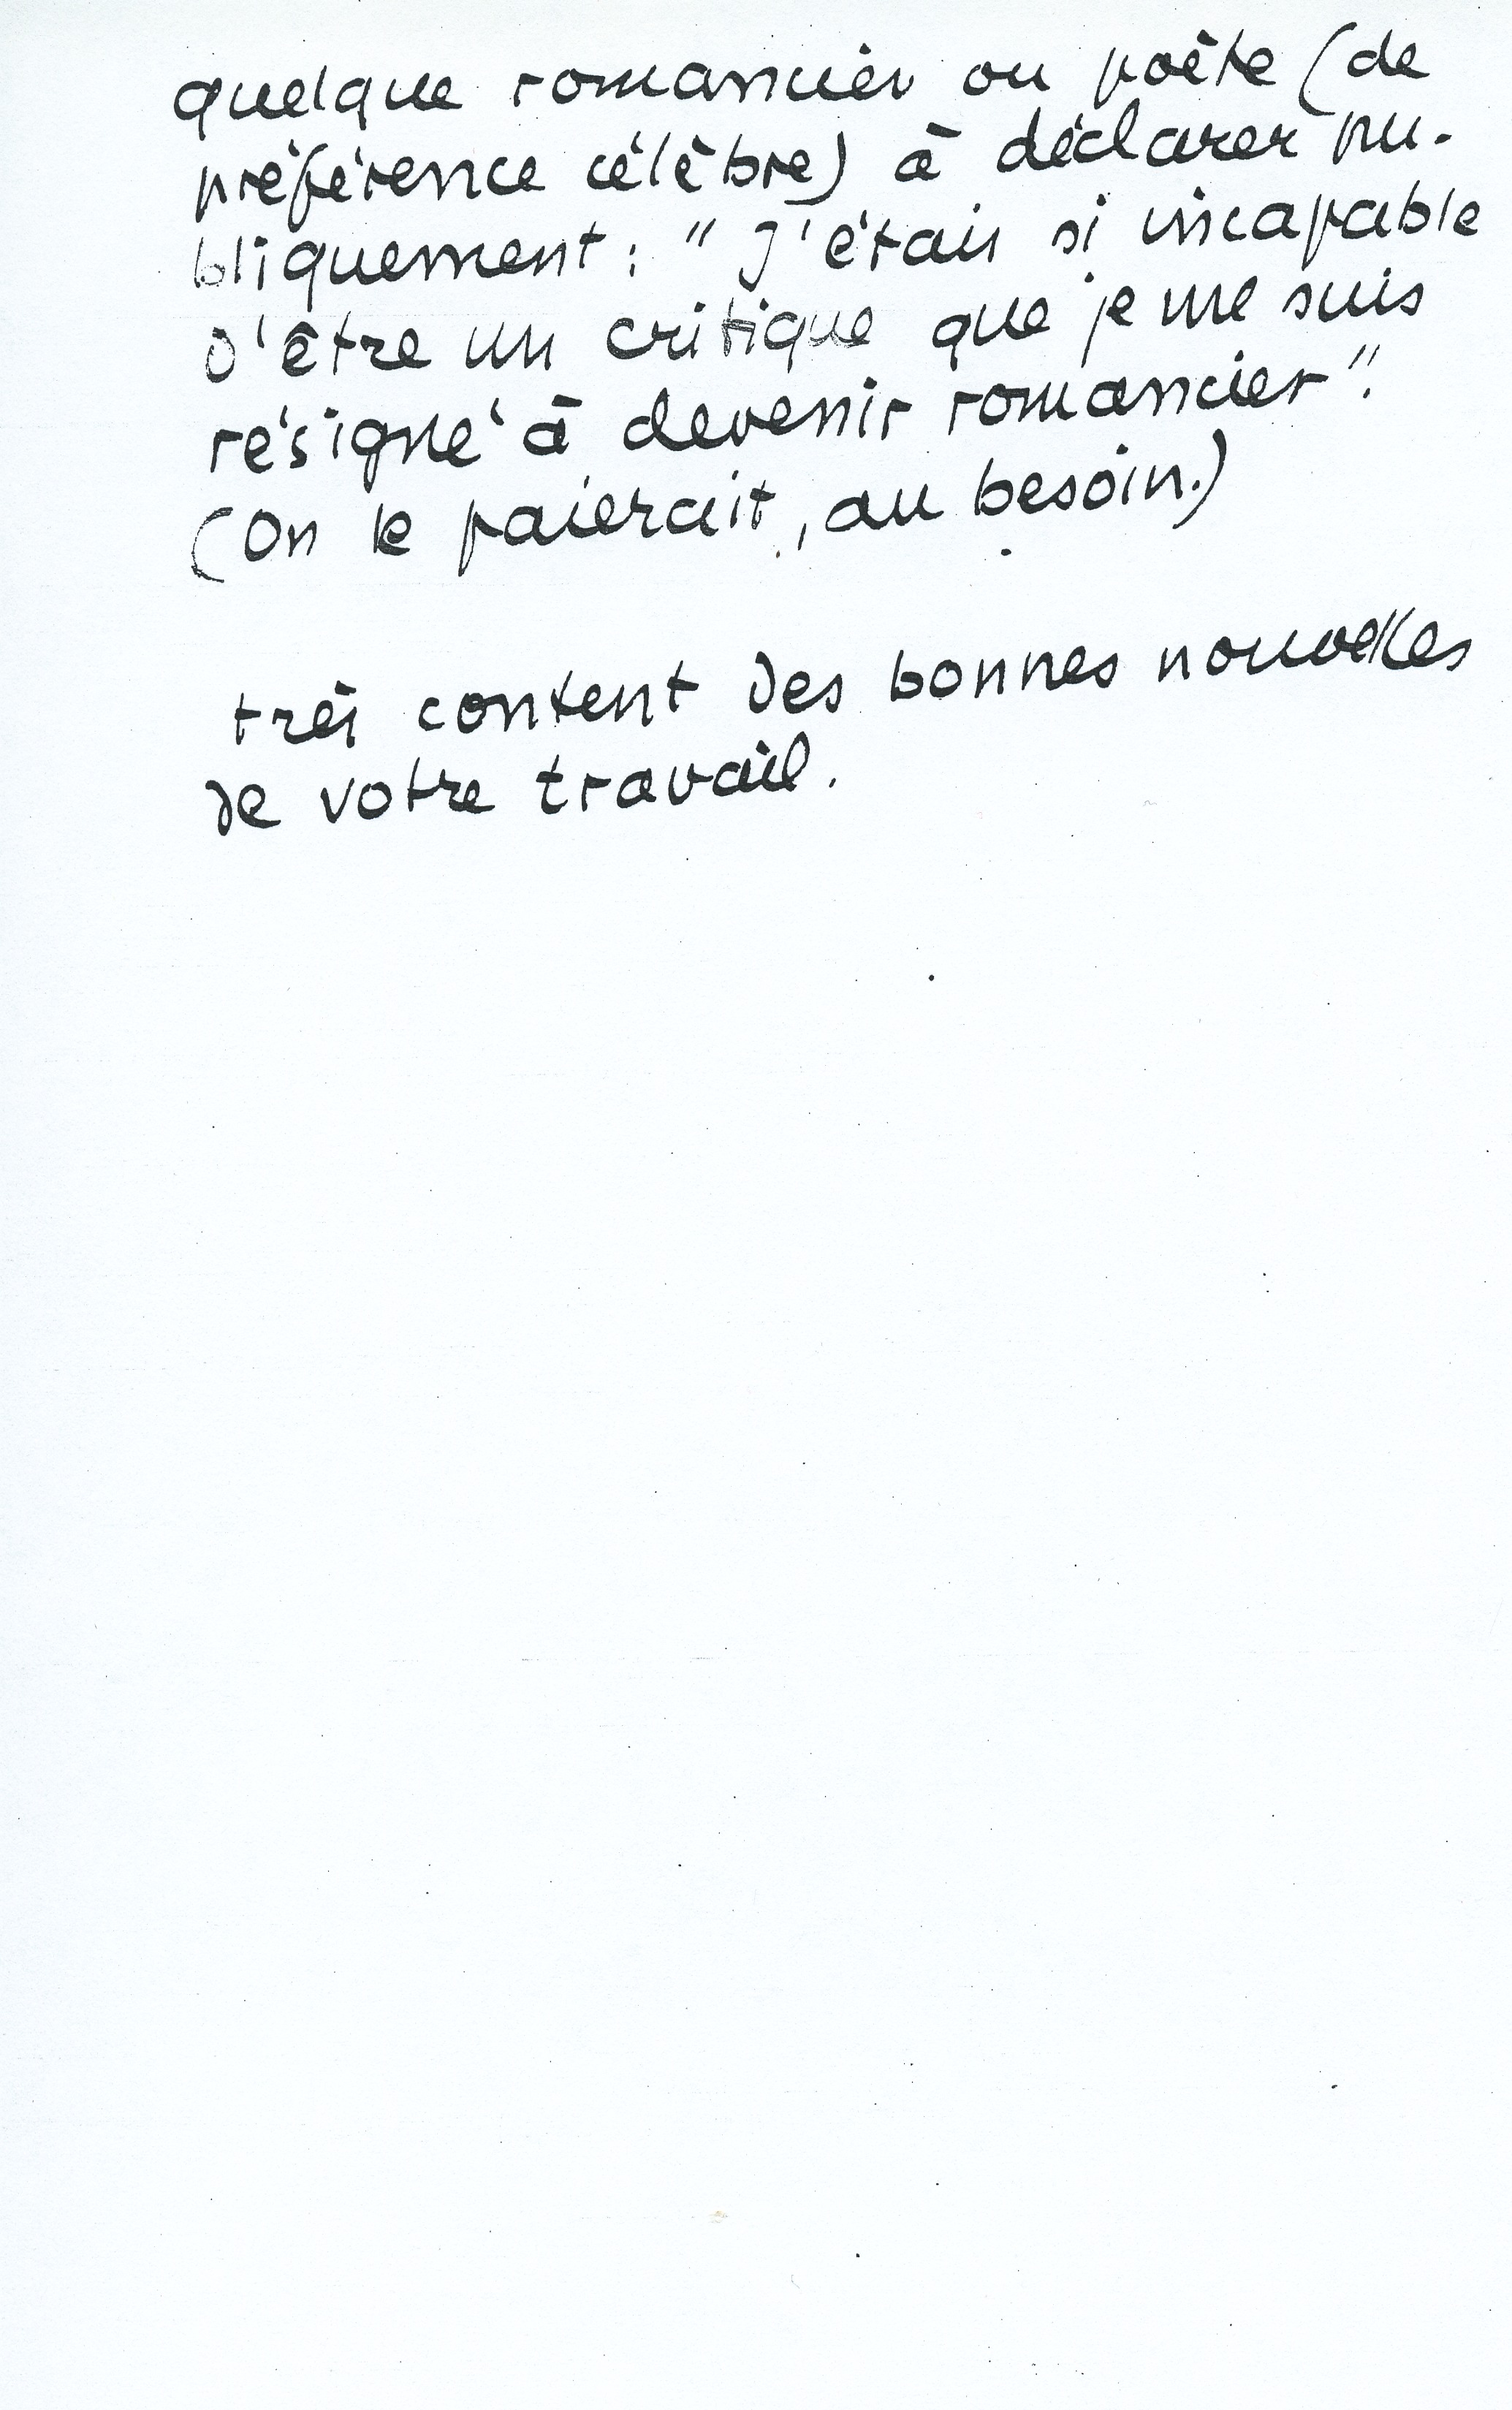 quelque romancier ou poète (de
préférence célèbre) à déclarer pu-
bliquement : " J'étais si incapable
d'être un critique que je me suis
résigné à devenir romancier ".
(On le paierait, au besoin.)
très content des bonnes nouvelles
de votre travail.